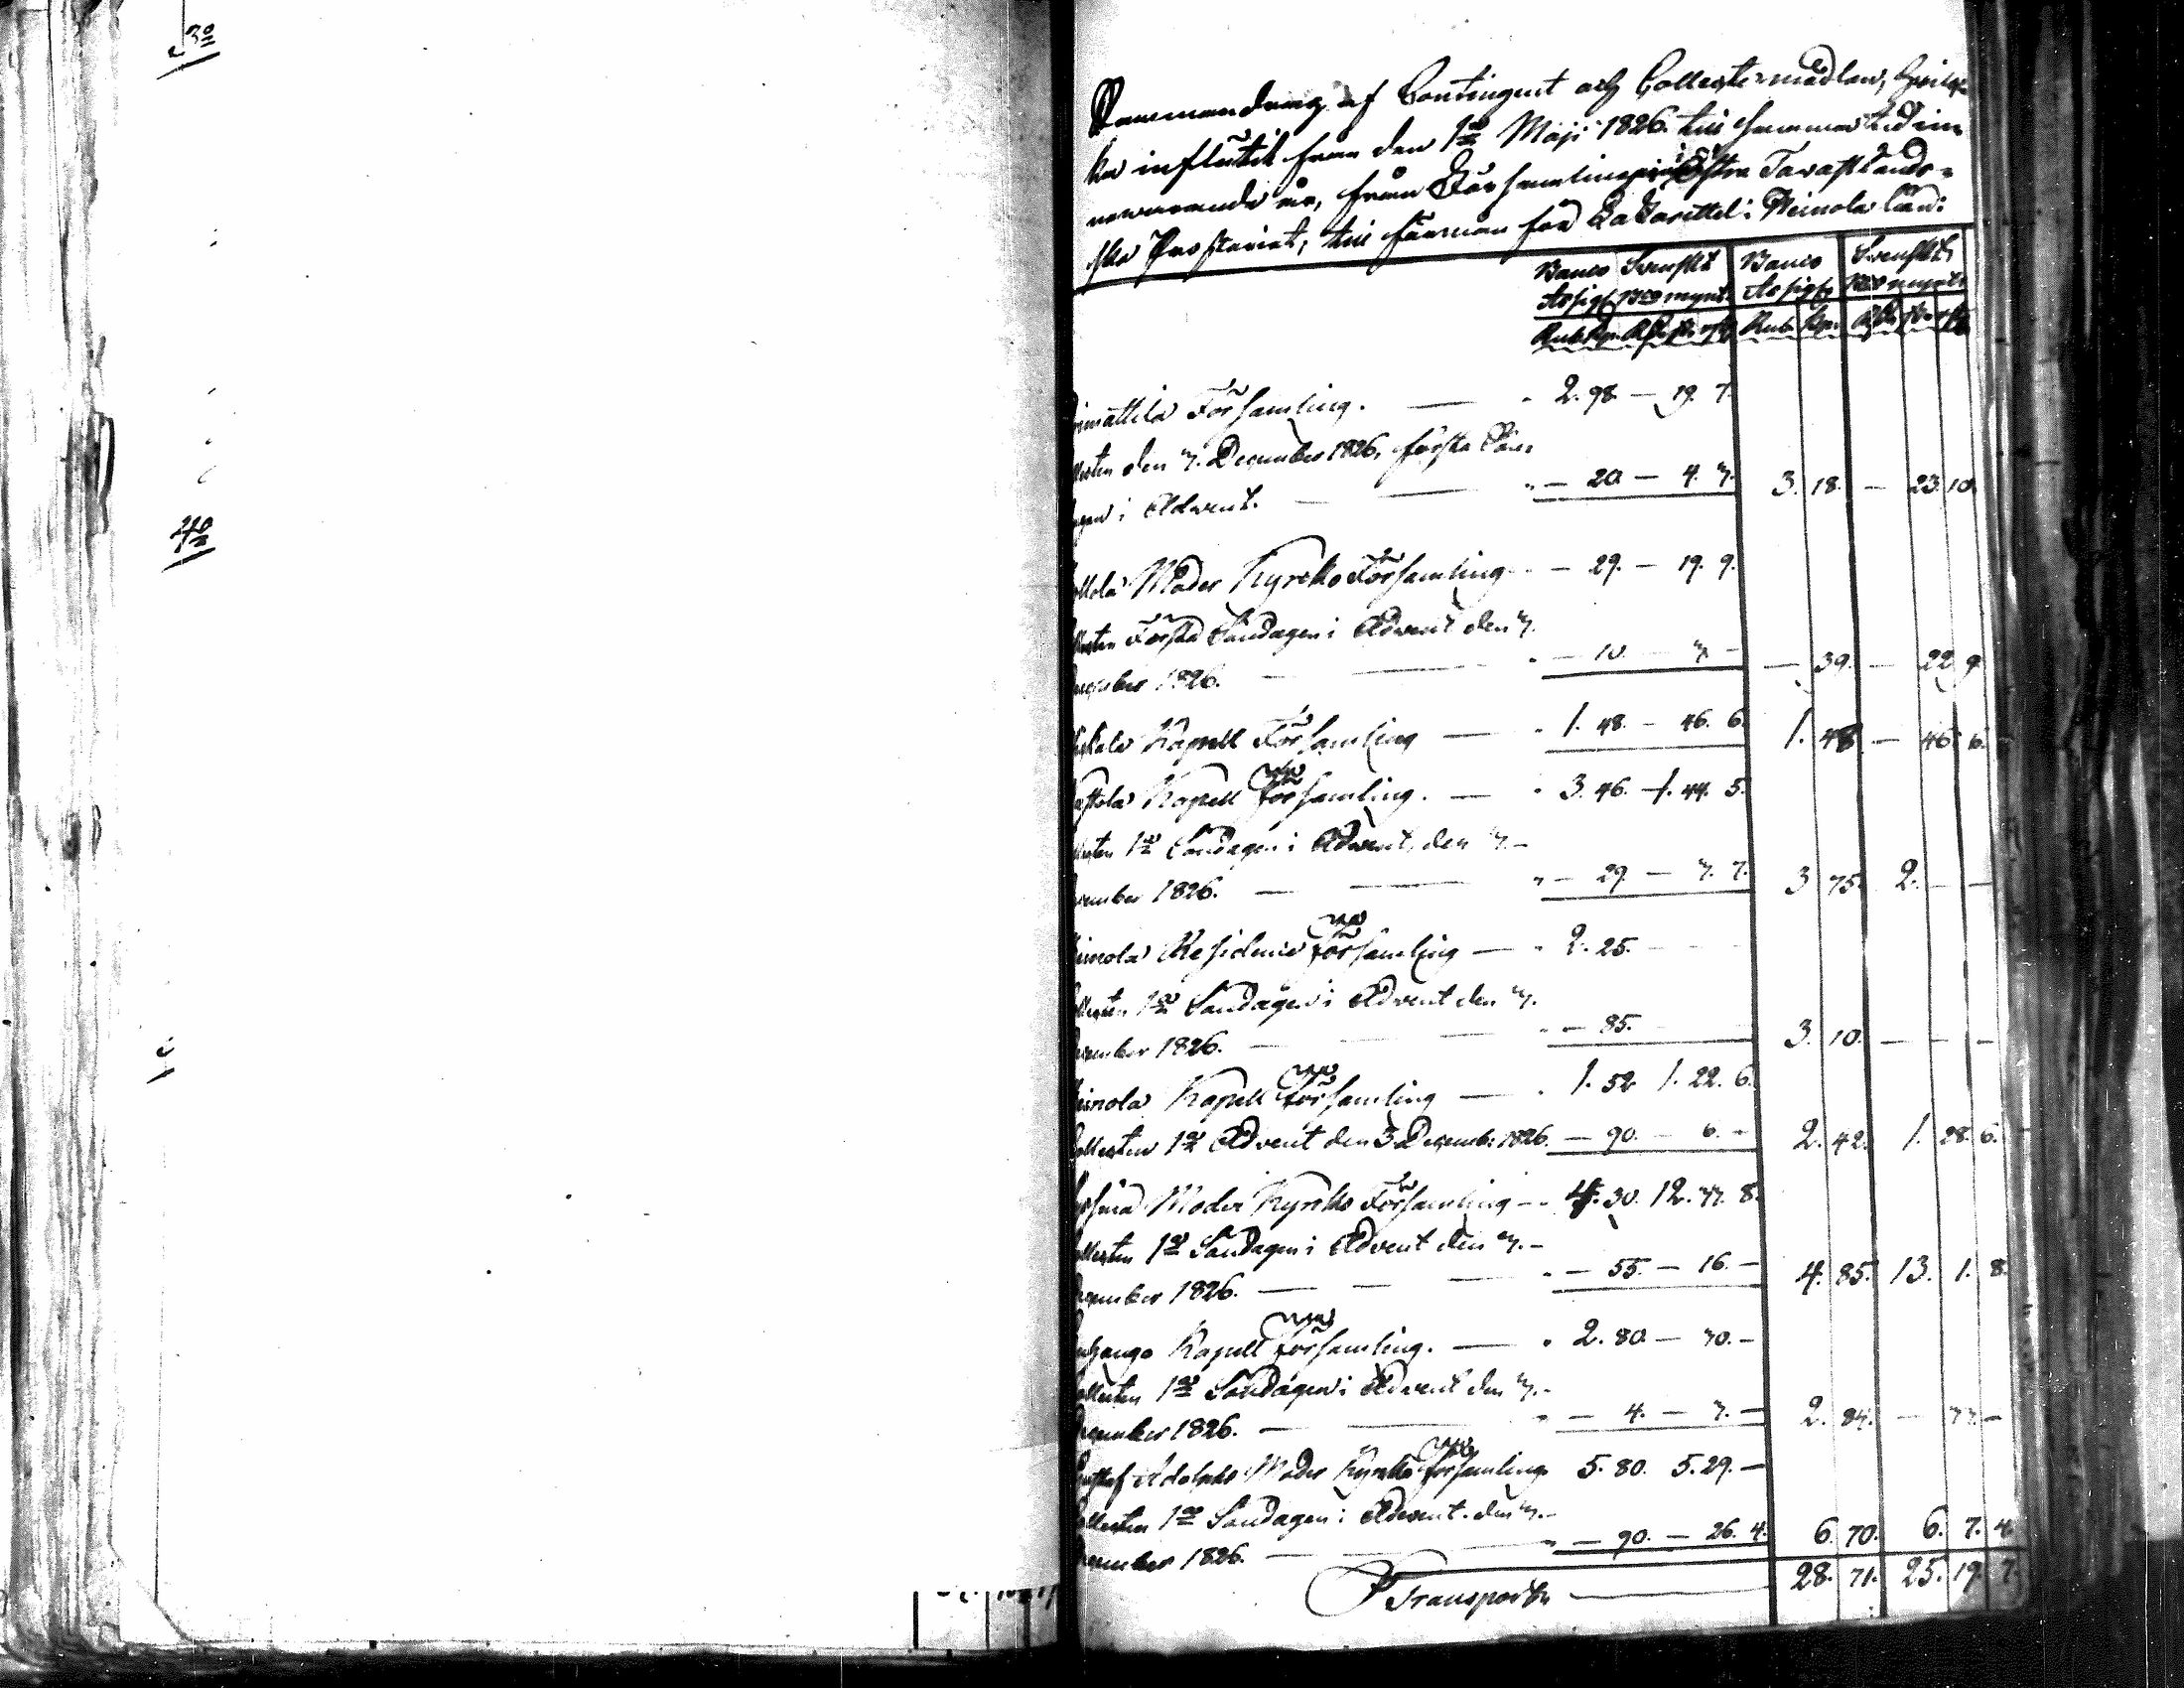 3o
4o
Sammandrag af Contingent och Collecte-medlen, hvilk
ka influtit från den 1sta Maji 1826. till samma tid in-
newarande år, från Församlingarne i Östra Tavastlands-
ska Prosteriet, till förmån för Lazarettet i Heinola län:
Banco Svenskt Banco Svenskt
Assigt. Bco mynt. Assigt. Bco mynt.
Rub. Kop. R. sk. rst. Rub. Kop. R. sk. rst.
imattila Församling. — 2. 98. — 19. 7.
llecten den 3. December 1826, första Sön-
agen i Advent. — — 20 — 4. 3. 3. 18. — 23. 10.
ollola Moder Kyrko Församling — 29. — 19. 9.
llecten Första Söndagen i Advent den 3.
ecember 1826. — — 10. — 3. — — 39. — 22. 9.
Kapell Församling — 1. 48. — 46. 6. 1. 48. — 46. 6.
astola Kapell Församling. — 3. 46. — 1. 44. 5.
llecten 1sta Söndagen i Advent, den 3.
ecember 1826. — — 29. — 3. 7. 3. 75. 2. — —
einola Residence Församling — 2. 25. — — —
llecten 1sta Söndagen i Advent den 3.
ecember 1826. — — 85. — 3. 10. — — —
einola Kapell Församling — 1. 52. 1. 22. 6.
ollecten 1sta Advent den 3 Decemb: 1826. — 90. — 6. — 2. 42. 1. 28. 6.
Moder Kyrko Församling — 4. 30. 12. 33. 8.
ollecten 1sta Söndagen i Advent den 3.
ecember 1826. — — 55. — 16. — 4. 85. 13. 1. 8.
Kapell Församling. — 2. 80. — 30. —
ollecten 1sta Söndagen i Advent den 3.
ecember 1826. — — 4. — 3. — 2. 84. — 33. —
ustaf Adolphs Moder Kyrko Församling 5. 80. 5. 29. —
ollecten 1sta Söndagen i Advent. den 3.
ecember 1826. — — 90. — 26. 4. 6. 70. 6. 7. 4.
Transport — 28. 71. 25. 19. 7.